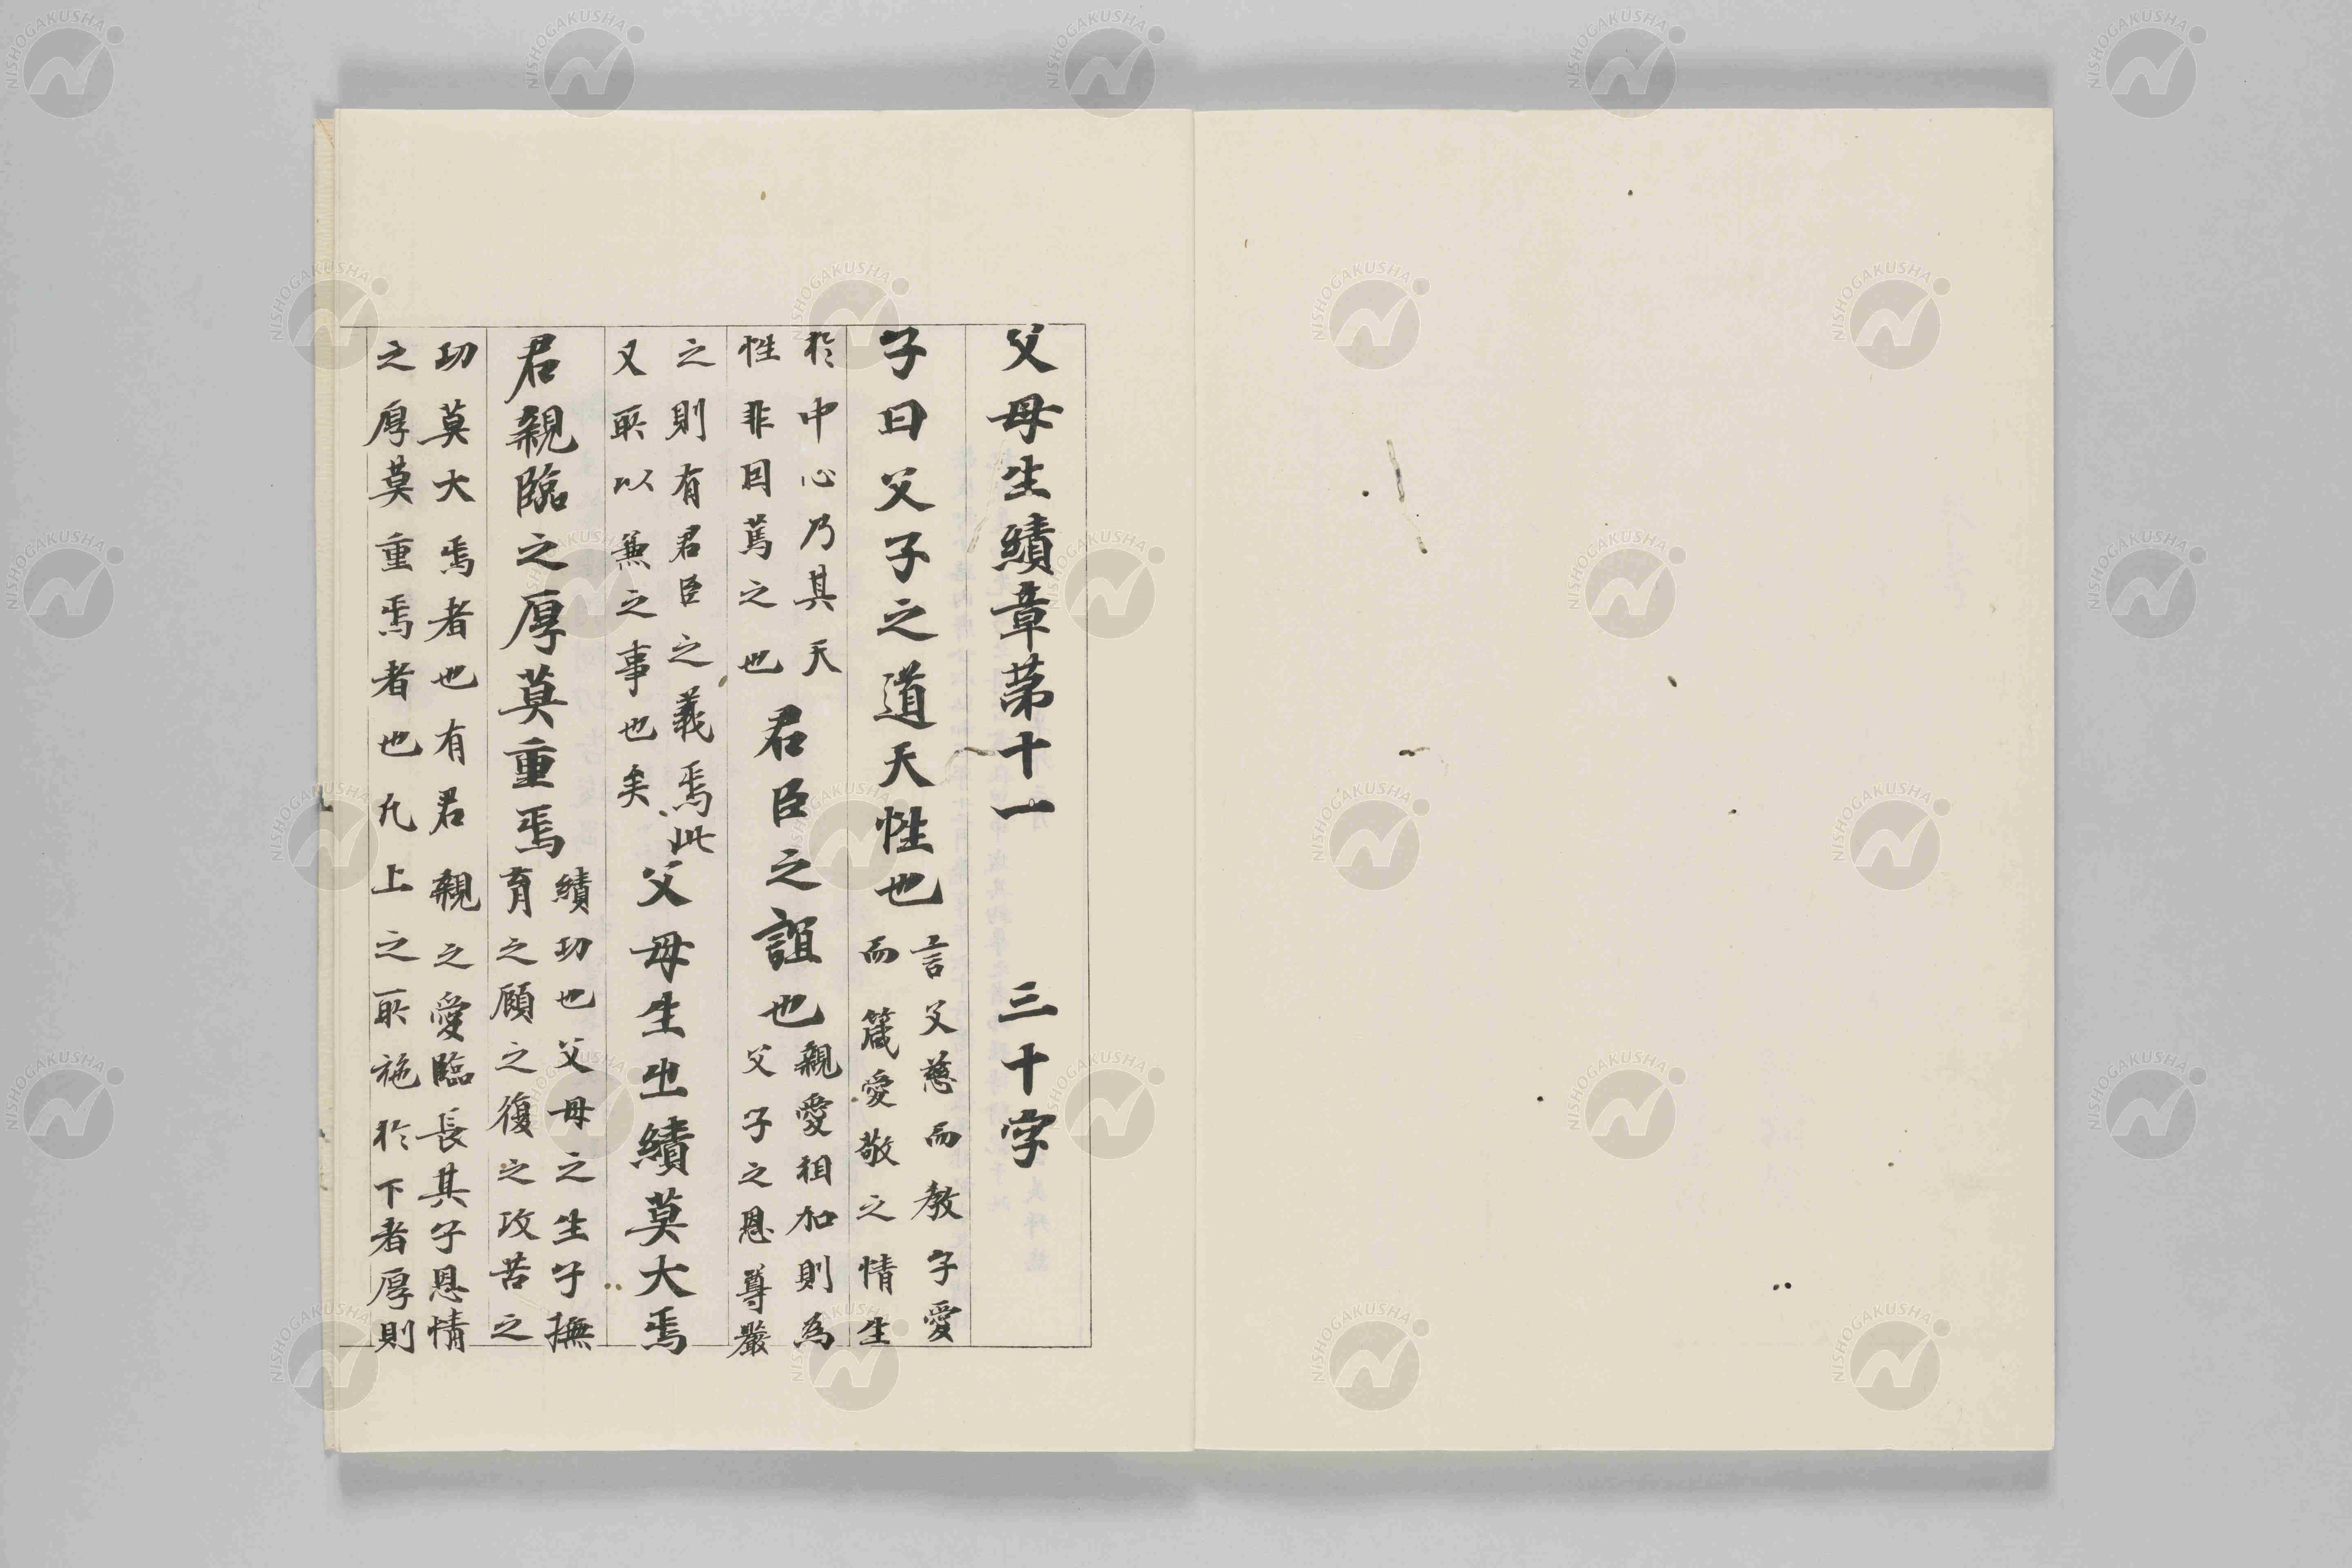 父母生績章苐十一　三十字
子曰父子之道天性也
言父慈而教子愛
而箴愛敬之情生
於中心乃其天
性非因篤之也
君臣之誼也
親愛祖加則為
父子之恩尊嚴
之則有君臣之義焉此
又所以兼之事也矣
父母生㞢績莫大焉
君親臨之厚莫重焉
績功也父母之生子撫
育之顧之復之攻苦之
功莫大焉者也有君親之愛臨長其子恩情
之厚莫重焉者也凡上之所施於下者厚則
NISHOGAKUSHA